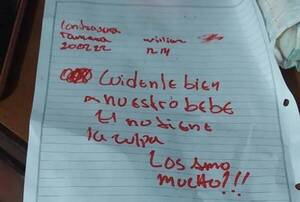 contraseña
ramona
200222
willian
1214
Cuidente bien
a nuestro bebe
El no tiene
la culpa
Los amo
mucho!!!